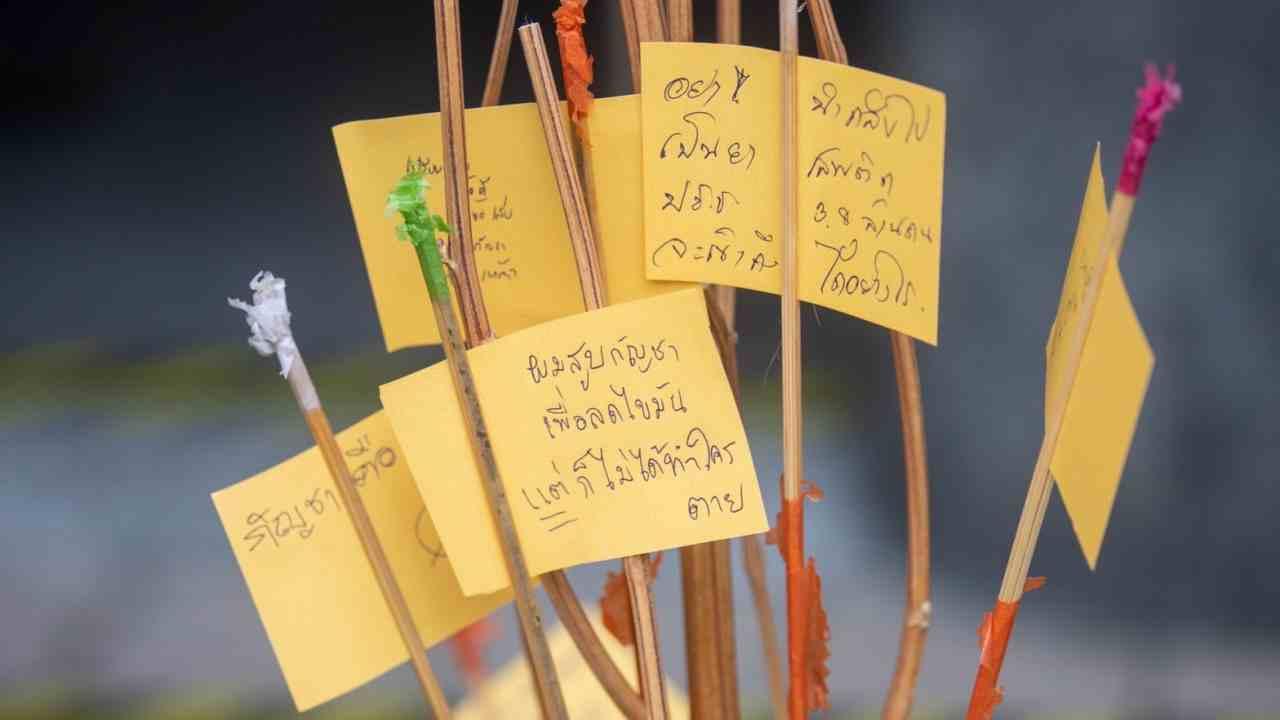 อย่า! นำกลับไป
เป็นยา เสพติด
ปชช 3.8 ล้านคน
จะเข้าถึง ได้อย่างไร.
ผมสูบกัญชา
เพื่อลดไขมัน
แต่ก็ไม่ได้ทำใคร
ตาย
กัญชา คือ